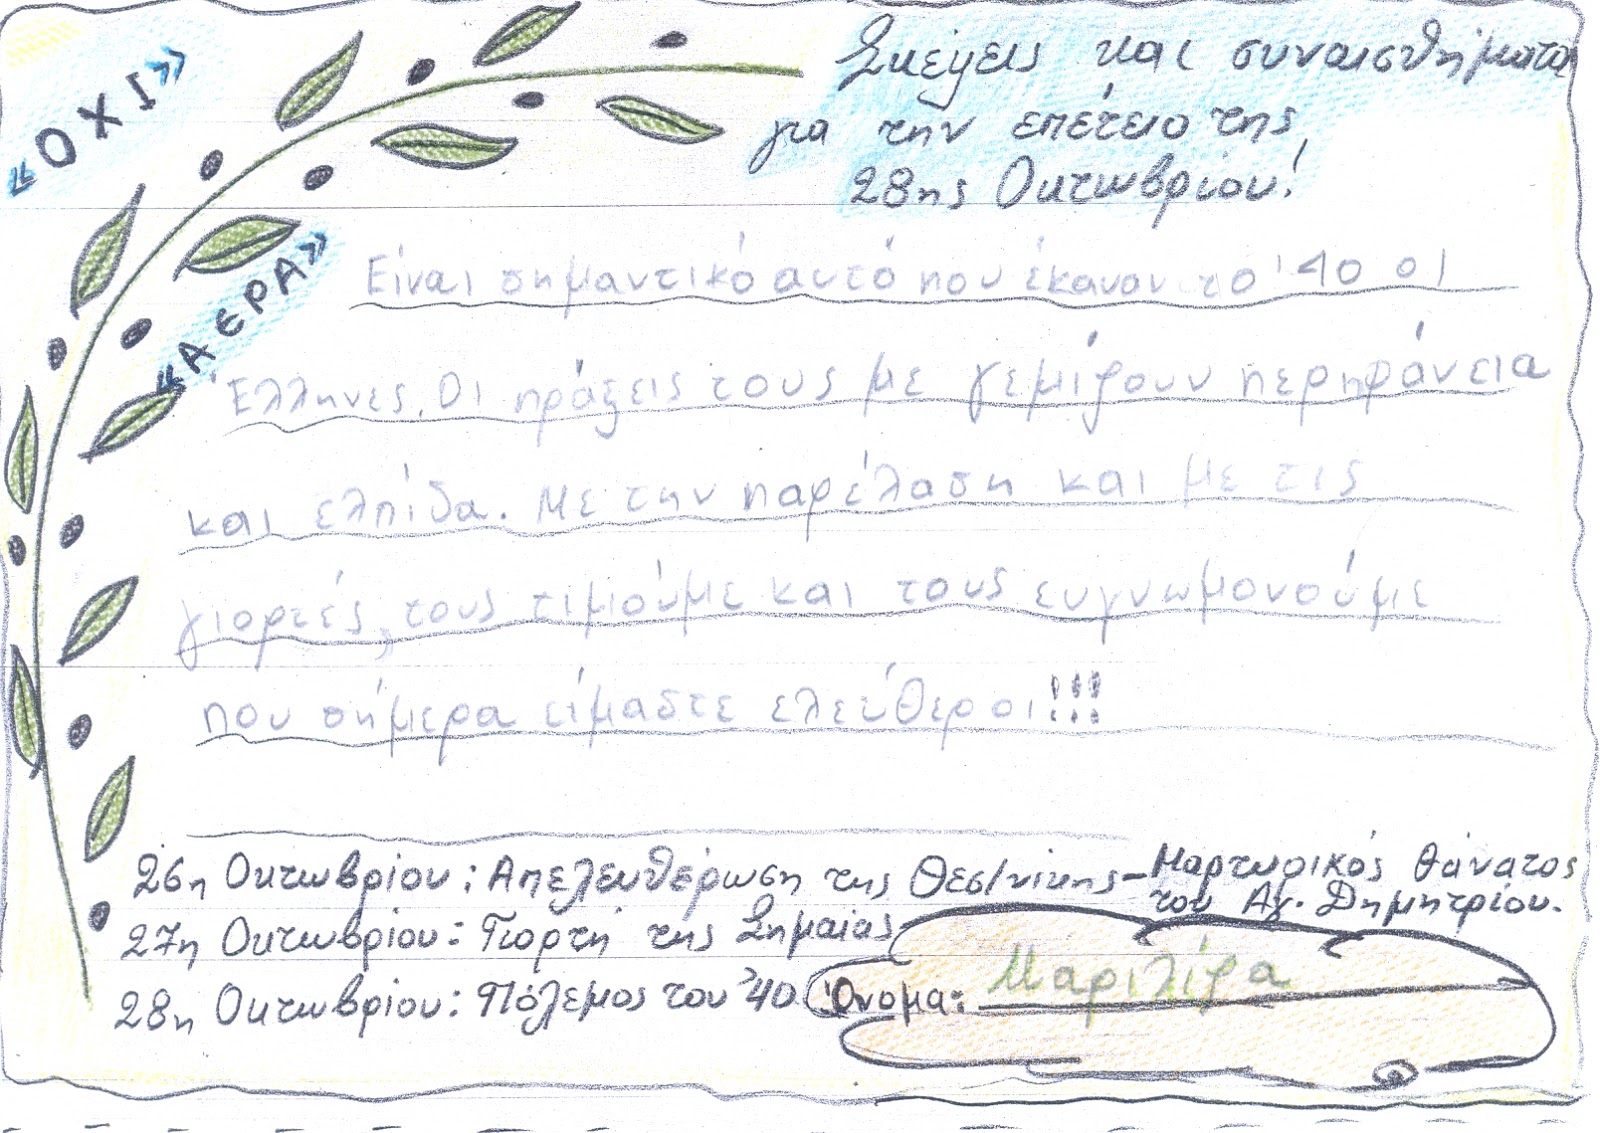 «ΟΧΙ»
Σκέψεις και συναισθήματα
για την επέτειο της
28ης Οκτωβρίου!
«ΑΕΡΑ»
Είναι σημαντικό αυτό που έκαναν το '40 οι
Έλληνες. Οι πράξεις τους με γεμίζουν περηφάνεια
και ελπίδα. Με την παρέλαση και με τις
γιορτές, τους τιμούμε και τους ευγνωμονούμε
που σήμερα είμαστε ελεύθεροι!!!
26η Οκτωβρίου: Απελευθέρωση της Θεσ/νίκης - Μαρτυρικός θάνατος
του Αγ. Δημητρίου.
27η Οκτωβρίου: Γιορτή της Σημαίας
28η Οκτωβρίου: Πόλεμος του '40.
Όνομα: Μαριλίζα